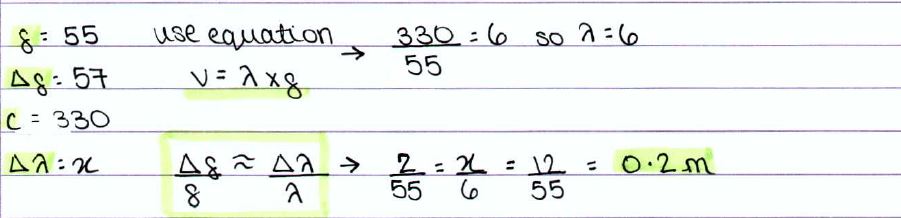 f = 55 use equation → 330/55 = 6 so λ = 6
Δf = 57 v = λ × f
c = 330
Δλ = x Δf/f ≈ Δλ/λ → 2/55 = x/6 = 12/55 = 0.2m